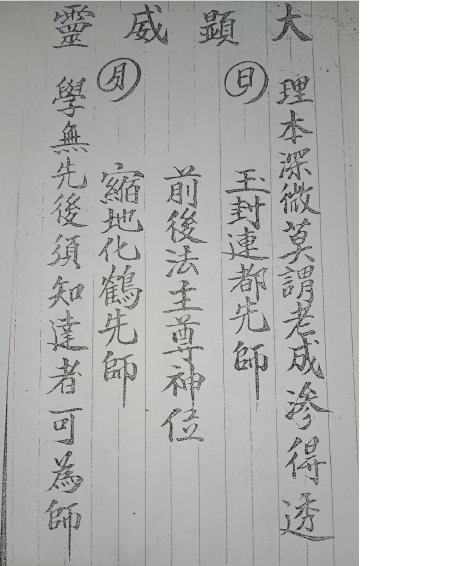 大顯威靈
理本深微莫謂老成滲得透
日
玉封連都先師
前後法主尊神位
月
縮地化鶴先師
學無先後須知達者可為師